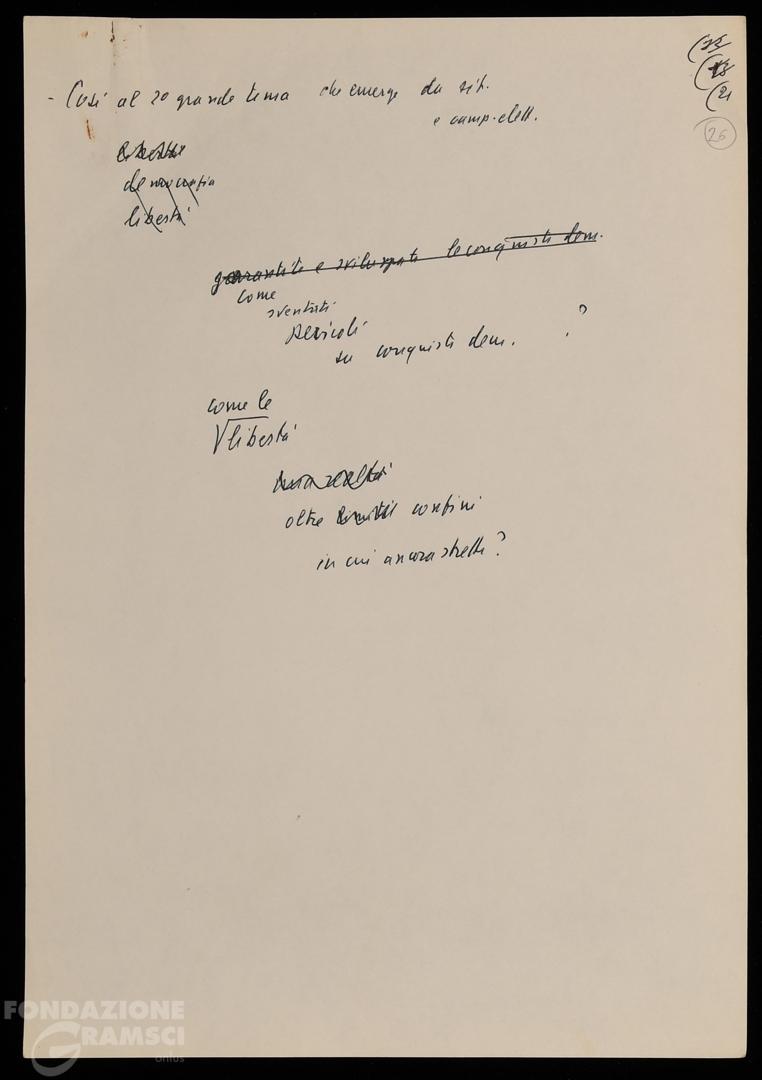 (21
26
- Così al 2º grande tema che emerge da sit.
e camp. elett.
democrazia
libertà
garantite e sviluppate le conquiste dem.
come
sventati
pericoli
su conquiste dem. ?
come le
libertà
oltre confini
in cui ancora strette?
FONDAZIONE
GRAMSCI
onlus